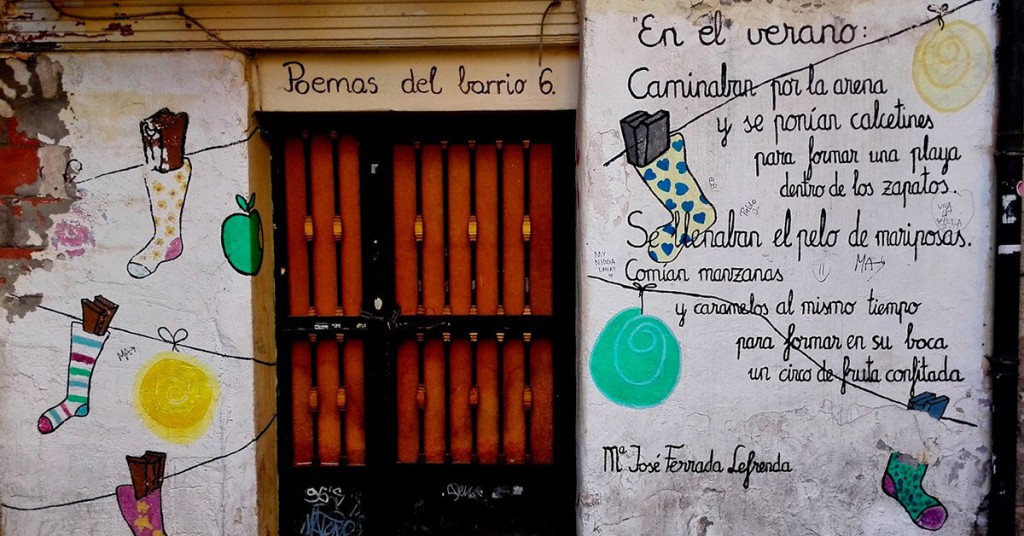 Poemas del barrio 6.
"En el verano:
Caminaban por la arena
y se ponían calcetines
para formar una playa
dentro de los zapatos.
Se llenaban el pelo de mariposas.
Comían manzanas
y caramelos al mismo tiempo
para formar en su boca
un circo de fruta confitada
Mª José Ferrada Lefrenda